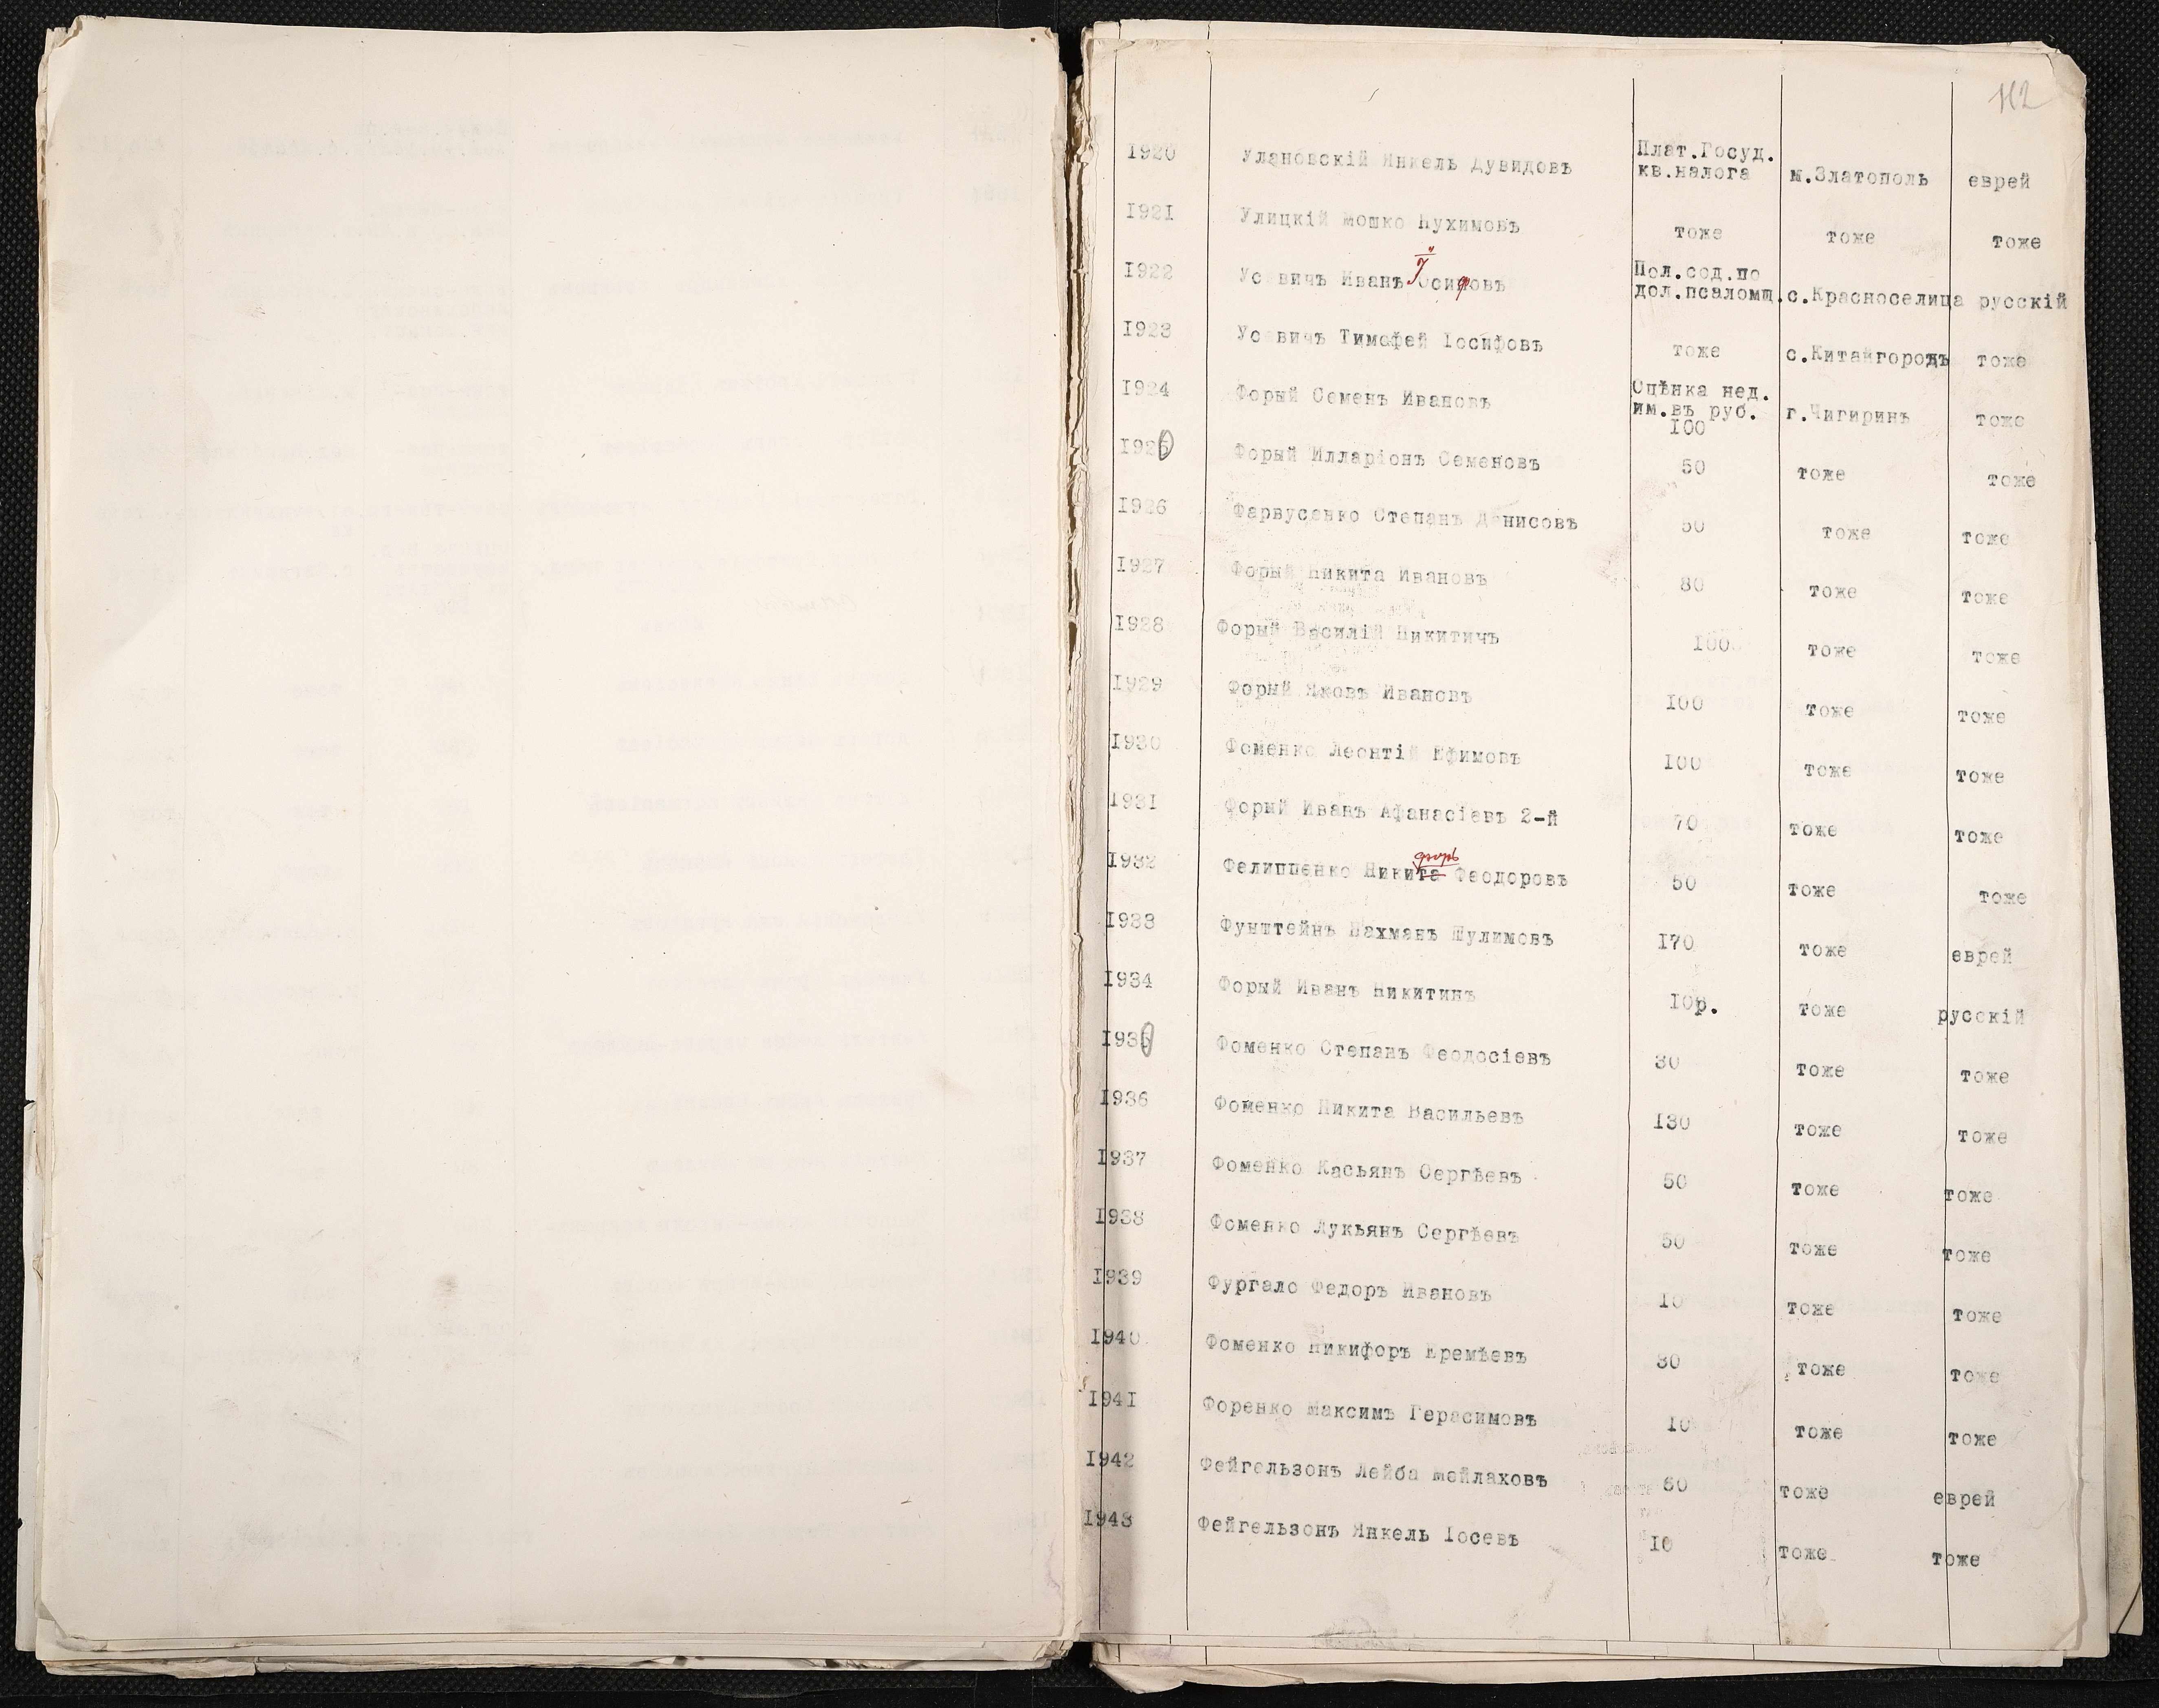 112
1920 Улановскій Янкель Дувидовъ Плат.Госуд. кв.налога м.Златополь еврей
1921 Улицкій Мошко Нухимовъ тоже тоже тоже
1922 Ус вичъ Иванъ Іосифовъ Пол.сод.по дол.псаломщ. с.Красноселица русскій
1923 Ус вичъ Тимофей Іосифовъ тоже с.Китайгородъ тоже
1924 Форый Семенъ Ивановъ Оцѣнка нед. им.въ руб. 100 г.Чигиринъ тоже
1925 Форый Илларіонъ Семеновъ 50 тоже тоже
1926 Фарвусенко Степанъ Денисовъ 50 тоже тоже
1927 Форый Никита Ивановъ 80 тоже тоже
1928 Форый Василій Никитичъ 100 тоже тоже
1929 Форый Яковъ Ивановъ 100 тоже тоже
1930 Фоменко Леонтій Ефимовъ 100 тоже тоже
1931 Форый Иванъ Афанасіевъ 2-й 70 тоже тоже
форъ
1932 Фелиппенко Никита Феодоровъ 50 тоже тоже
1933 Фунштейнъ Нахманъ Шулимовъ 170 тоже еврей
1934 Форый Иванъ Никитинъ 10р. тоже русскій
1935 Фоменко Степанъ Феодосіевъ 30 тоже тоже
1936 Фоменко Никита Васильевъ 130 тоже тоже
1937 Фоменко Касьянъ Сергѣевъ 50 тоже тоже
1938 Фоменко Лукьянъ Сергѣевъ 50 тоже тоже
1939 Фургало Федоръ Ивановъ 10 тоже тоже
1940 Фоменко Никифоръ Еремѣевъ 30 тоже тоже
1941 Форенко Максимъ Герасимовъ 10 тоже тоже
1942 Фейгельзонъ Лейба Мейлаховъ 60 тоже еврей
1943 Фейгельзонъ Янкель Іосевъ 10 тоже тоже